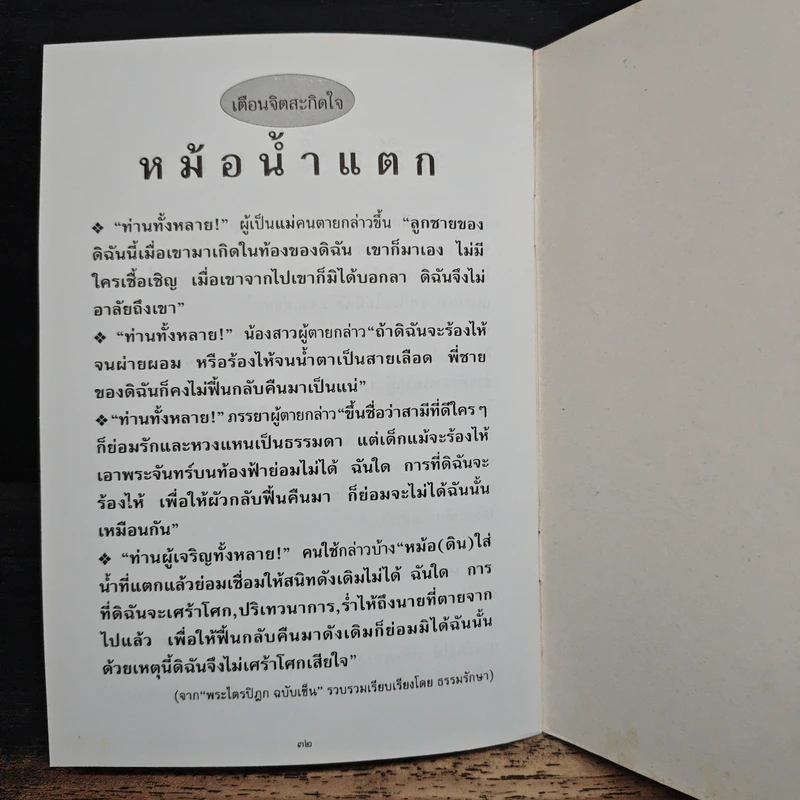 เตือนจิตสะกิดใจ
หม้อน้ำแตก
❖ “ท่านทั้งหลาย!” ผู้เป็นแม่คนตายกล่าวขึ้น “ลูกชายของ
ดิฉันนี้เมื่อเขามาเกิดในท้องของดิฉัน เขาก็มาเอง ไม่มี
ใครเชื้อเชิญ เมื่อเขาจากไปเขาก็มิได้บอกลา ดิฉันจึงไม่
อาลัยถึงเขา”
❖ “ท่านทั้งหลาย!” น้องสาวผู้ตายกล่าว“ถ้าดิฉันจะร้องไห้
จนผ่ายผอม หรือร้องไห้จนน้ำตาเป็นสายเลือด พี่ชาย
ของดิฉันก็คงไม่ฟื้นกลับคืนมาเป็นแน่”
❖ “ท่านทั้งหลาย!” ภรรยาผู้ตายกล่าว“ขึ้นชื่อว่าสามีที่ดีใครๆ
ก็ย่อมรักและหวงแหนเป็นธรรมดา แต่เด็กแม้จะร้องไห้
เอาพระจันทร์บนท้องฟ้าย่อมไม่ได้ ฉันใด การที่ดิฉันจะ
ร้องไห้ เพื่อให้ผัวกลับฟื้นคืนมา ก็ย่อมจะไม่ได้ฉันนั้น
เหมือนกัน”
❖ “ท่านผู้เจริญทั้งหลาย!” คนใช้กล่าวบ้าง“หม้อ(ดิน)ใส่
น้ำที่แตกแล้วย่อมเชื่อมให้สนิทดังเดิมไม่ได้ ฉันใด การ
ที่ดิฉันจะเศร้าโศก,ปริเทวนาการ,ร่ำไห้ถึงนายที่ตายจาก
ไปแล้ว เพื่อให้ฟื้นกลับคืนมาดังเดิมก็ย่อมมิได้ฉันนั้น
ด้วยเหตุนี้ดิฉันจึงไม่เศร้าโศกเสียใจ”
(จาก“พระไตรปิฎก ฉบับเซ็น” รวบรวมเรียบเรียงโดย ธรรมรักษา)
๓๒